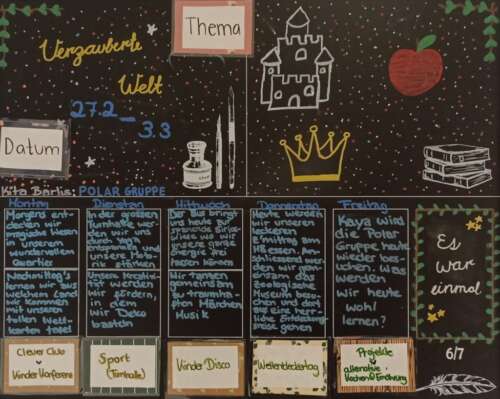 Thema
Verzauberte
Welt
27.2 -
3.3
Datum
Kita Bärlis: POLAR GRUPPE
Montag
Dienstag
Mittwoch
Donnerstag
Freitag
Morgens ent-
decken wir
magische Wesen
in unserem
wundervollen
Quartier
Nachmittag's
lernen wir aus
welchem Land
wir kommen
mit unseren
tollen Welt-
karten tafel
In der grossen
Turnhalle wer-
den wir uns
durch Yoga
entspannen
und unsere Moto-
rik stärken
Unsere kreativi-
tät werden
wir fördern,
in dem
wir Deko
basteln
Der Bus bringt
uns heute zur
wo wir
unsere ganze
Energie frei
lassen können
Wir tanzen
gemeinsam
zu traumhaf-
ten Märchen
Musik
Heute werden
wir unseren
leckeren
Z'mittag am
essen. An-
schliessend wer-
den wir gemein-
sam das
Zoologische
Museum besu-
chen und dort
auf eine herr-
liche Entdeckungs-
reise gehen
Kaya wird
die Polar
Gruppe heute
wieder besu-
chen. Was
werden
wir heute
wohl
lernen?
Es
war
einmal
Clever Club
Kinder Konferenz
Sport
(Turnhalle)
Kinder Disco
Weltentdeckertag
Projekte
alternative
Kochen & Ernährung
6/7